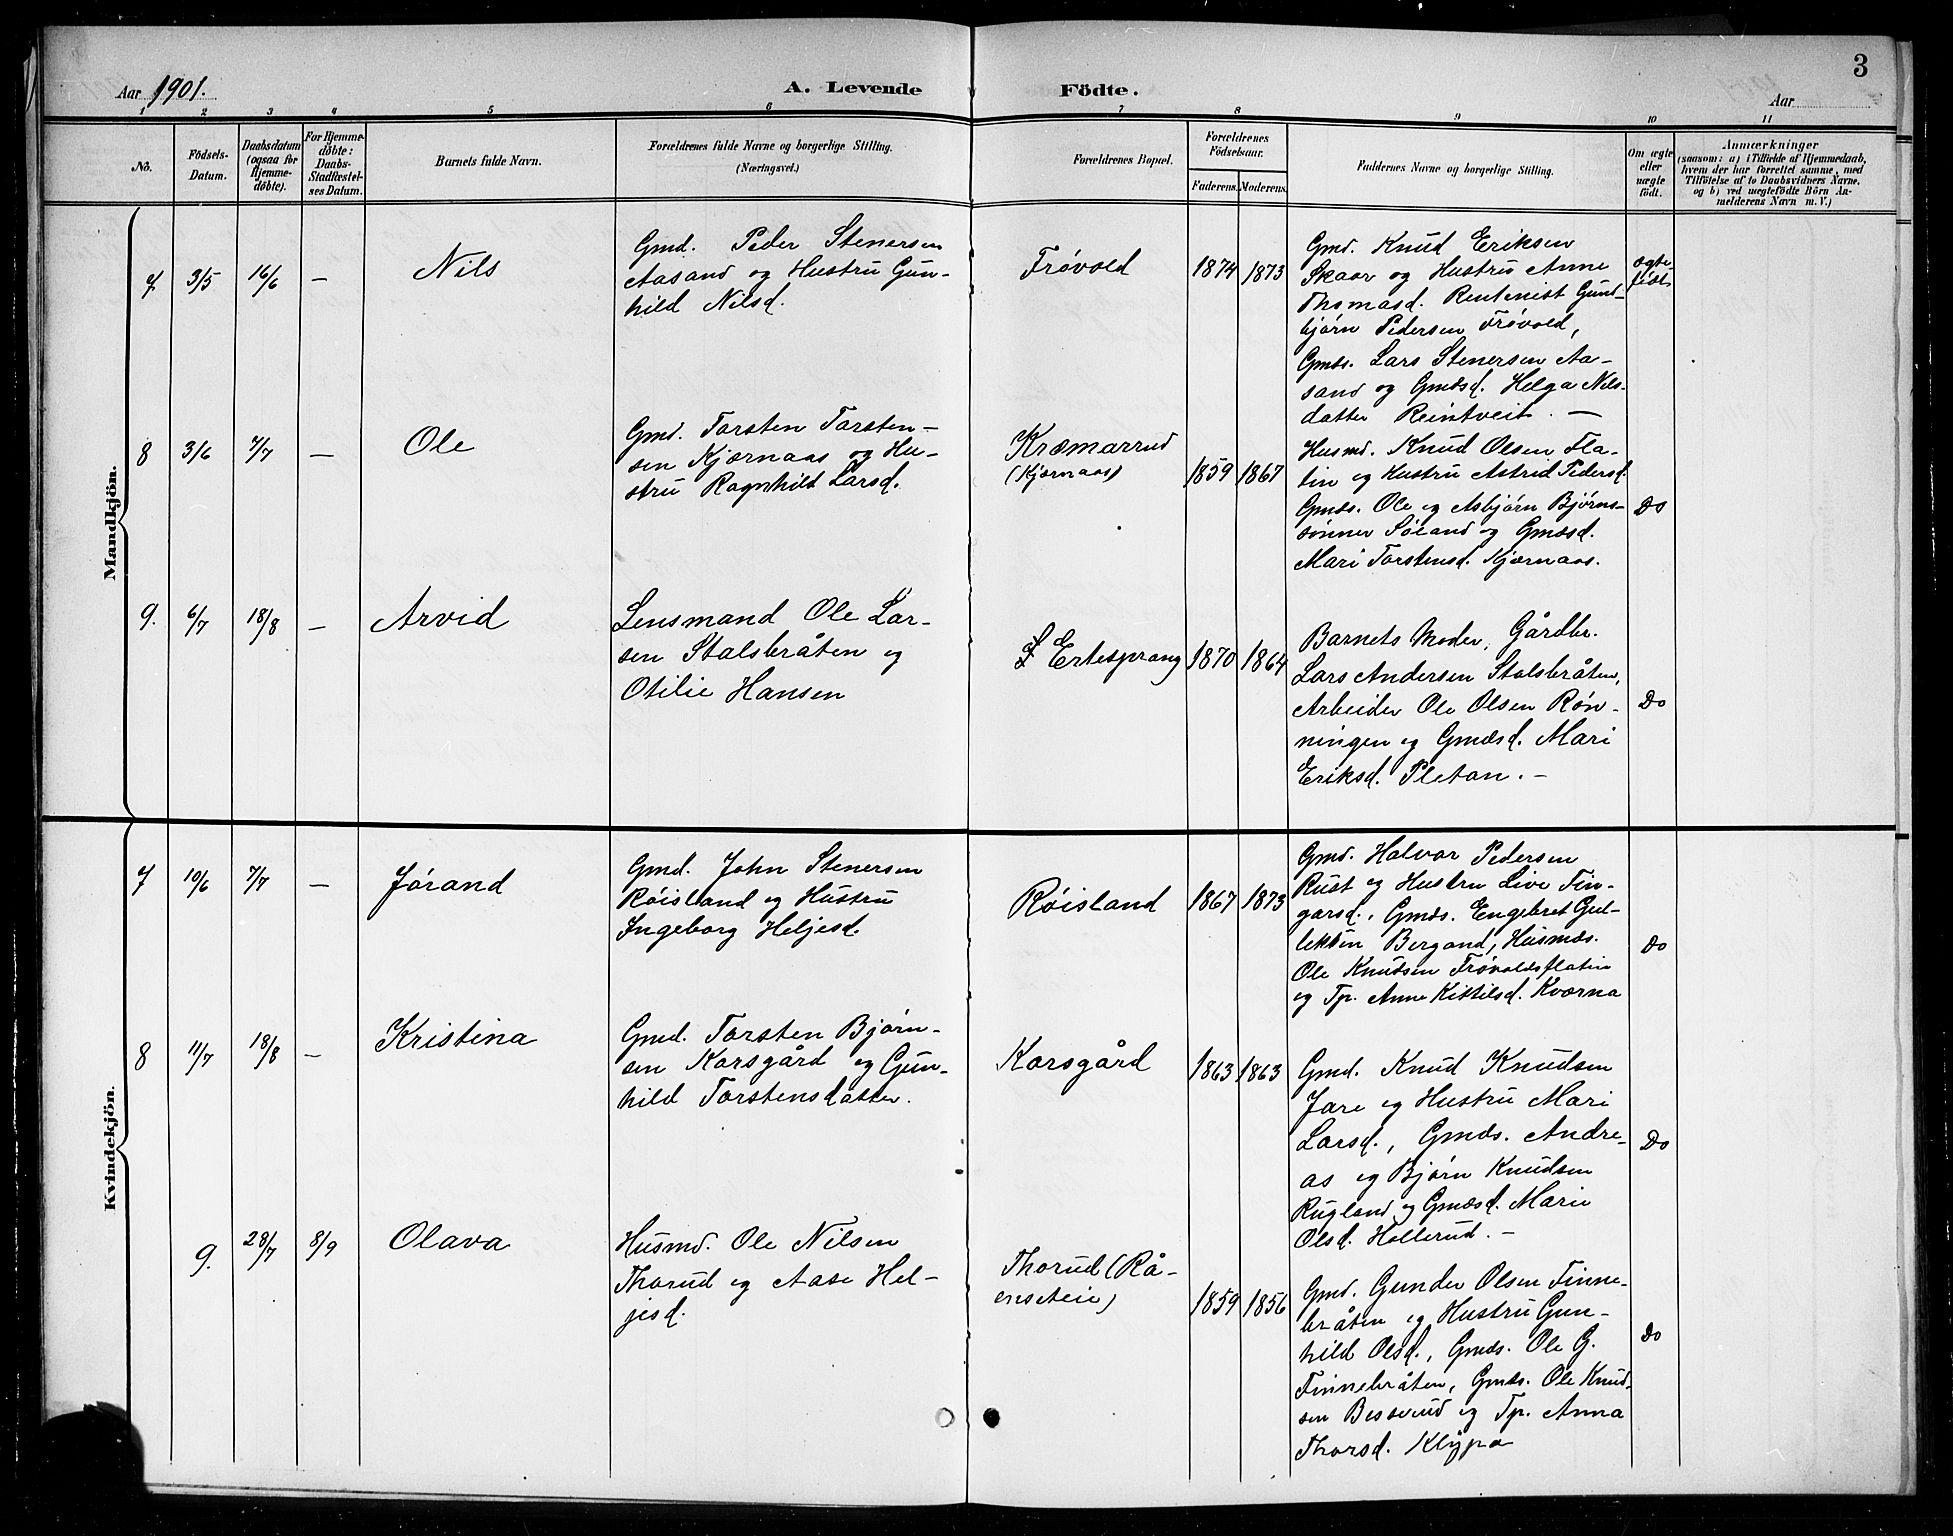 3
Aar 1901.
A. Levende Födte.
Aar
1 2 3 4 5 6 7 8 9 10 11
No.
Födsels-
Datum.
Daabsdatum
(ogsaa for
Hjemme-
döbte).
For Hjemme-
döbte:
Daabs-
Stadfæstel-
ses Datum.
Barnets fulde Navn.
Forældrenes fulde Navne og borgerlige Stilling.
(Næringsvei.)
Forældrenes Bopæl.
Forældrenes
Födselsaar.
Faderens. Moderens.
Faddernes Navne og borgerlige Stilling.
Om ægte
eller
uægte
födt.
Anmærkninger
(saasom: a) i Tilfælde af Hjemmedaab,
hvem der har forrettet samme, med
Tilföielse af to Daabsvidners Navne,
og b) ved uægtefödte Börn An-
melderens Navn m. V.)
Mandkjön.
7 3/5 16/6 — Nils
Gmd. Peder Stenersen
Aasand og Hustru Gun-
hild Nilsd.
Frøvold
1874 1873
Gmd. Knud Eriksen
Skaar og Hustru Anne
Thomasd. Rentenist Gun-
bjørn Pedersen Frøvold,
Gmds. Lars Stenersen Aa-
sand og Gmdsd. Helga Nils-
datter Reintveit. —
ægte-
født
8 3/6 7/7 — Ole
Gmd. Torsten Torsten-
sen Kjærnaas og Hu-
stru Ragnhild Larsd.
Kræmarrud
(Kjærnaas)
1859 1867
Husmd. Knud Olsen Fla-
tin og Hustru Astrid Pedersd.
Gmds. Ole og Asbjørn Bjørns-
sønner Søland og Gmdsd.
Mari Torstensd. Kjærnaas.
Do
9. 6/7 18/8 — Arvid
Lensmand Ole Lar-
sen Stalsbråten og
Otilie Hansen
Ertesprang
1870 1864
Barnets Moder, Gårdbr.
Lars Andersen Stalsbråten,
Arbeider Ole Olsen Røn-
ningen og Gmdsd. Mari
Eriksd. Pletan. —
Do
Kvindekjön.
7 10/6 7/7 — Jørand
Gmd. John Stenersen
Røisland og Hustru
Ingeborg Heljesd.
Røisland
1867 1873
Gmd. Halvor Pedersen
Rust og Hustru Live Fin-
garsd., Gmds. Engebret Gul-
leksen Bergand, Husmds.
Ole Knudsen Frøvoldsflatin
og Tp. Anne Kittilsd. Kværna
Do
8 11/7 18/8 — Kristina
Gmd. Torsten Bjørn-
sen Korsgård og Gun-
hild Torstensdatter.
Korsgård
1863 1863
Gmd. Knud Knudsen
Jare og Hustru Mari
Larsd., Gmds. Andre-
as og Bjørn Knudsen
Rugland og Gmdsd. Marie
Olsd. Hollerud. —
Do
9. 28/7 8/9 Olava
Husmd. Ole Nilsen
Thorud og Aase Hel-
jesd.
Thorud (Rå-
enseteie)
1859 1856
Gmd. Gunder Olsen Finne-
bråten og Hustru Gun-
hild Olsd., Gmds. Ole G.
Finnebråten, Gmds. Ole Knud-
sen Besserud og Tp. Anna
Thorsd. Klypa
Do